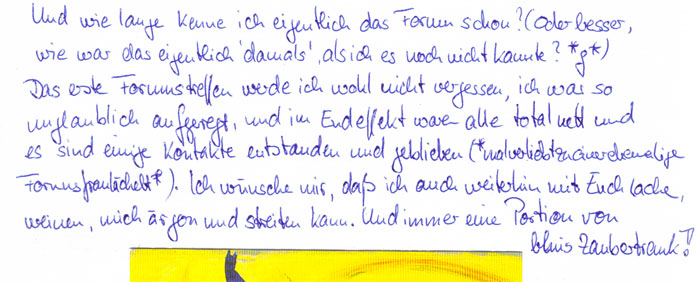 Und wie lange kenne ich eigentlich das Forum schon? (Oder besser,
wie war das eigentlich 'damals', als ich es noch nicht kannte? *g*)
Das erste Forumstreffen werde ich wohl nicht vergessen, ich war so
unglaublich aufgeregt, und im Endeffekt waren alle total nett und
es sind einige Kontakte entstanden und geblieben (*malverliebtzueinerehemalige
Forumsfraulächelt*). Ich wünsche mir, daß ich auch weiterhin mit Euch lache,
weinen, mich ärgern und streiten kann. Und immer eine Portion von
Zaubertrank!